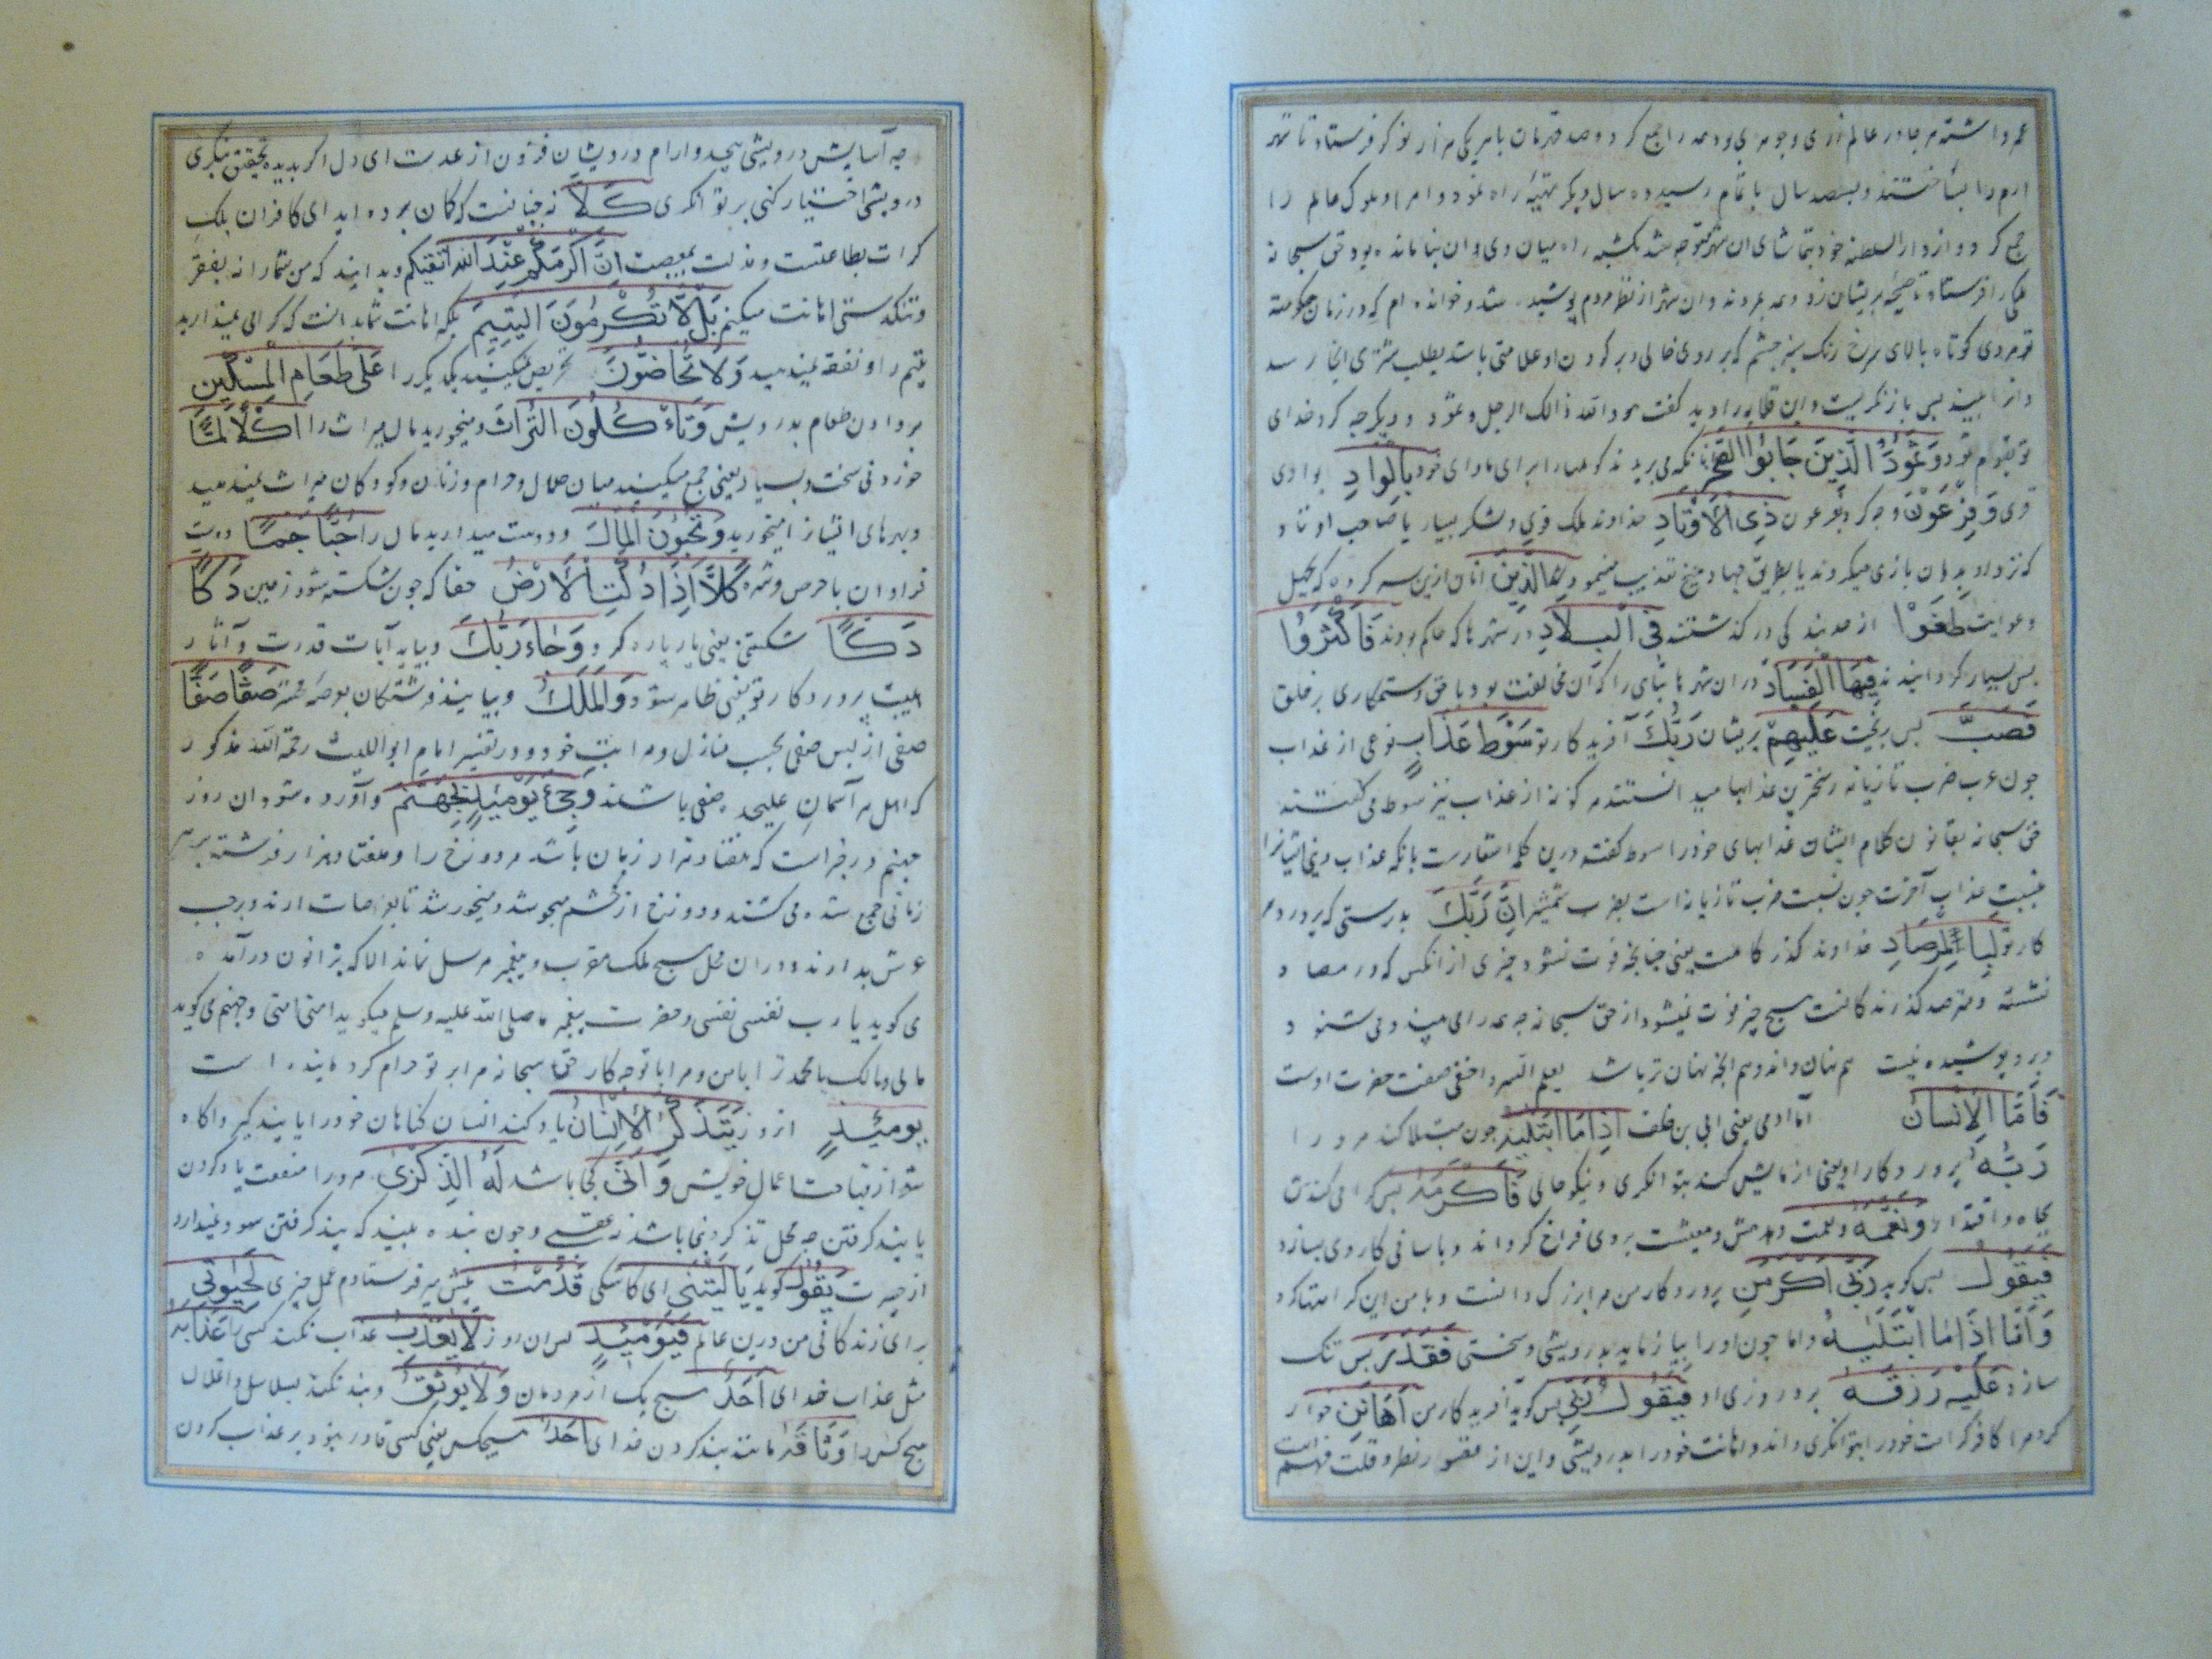 ارم را بساختند و بپصد سال باتمام رسید و ده سال دیگر تهیهٔ راه نمود و امرا و ملوک عالم را
جمع کرد و از دار السلطنه خود بتماشای ان شهر متوجه شد یکشبه راه میان وی و ان بنا مانده بود حق سبحانه
ملکی را فرستاد تا صیحهٔ بریشان زد و همه بمردند و ان شهر از نظر مردم پوشیده شد و خوانده ام که در زمان حکومت
مردی کوتاه بالای سرخ رنک سبز چشم که بر روی خالی و بر کردن او علامتی باشد بطلب شتری انجا رسد
و انرا ببیند پس باز نکریست و ابن قلابه را دید کفت هو والله ذالک الرجل و ثمود و دیکر چه کرد خدای
تو بقوم ثمود وَثَمُودَ الَّذِينَ جَابُوا الصَّخْرَ انانکه می بریدند کوهها را برای ماوای خود بِالْوَادِ بوادی
قری وَفِرْعَوْنَ و چه کرد بفرعون ذِی الْاَوْتَادِ خداوند ملک قوی و لشکر بسیار یا صاحب اوتاد
که نزد او بدان بازی میکردند یا بطریق چهار میخ تعذیب مینمود الَّذِينَ انان ازین سه کروه که بجهل
و غوایت طَغَوْا از حد بندکی درکذشتند فِی الْبِلَادِ در شهرها که حاکم بودند فَاَكْثَرُوا
پس بسیار کردانیدند فِيهَا الْفَسَادَ در ان شهرها تباهی را که ان مخالفت بود با حق و ستمکاری بر خلق
فَصَبَّ پس ریخت عَلَيْهِمْ بریشان رَبُّكَ آفریدکار تو سَوْطَ عَذَابٍ نوعی از عذاب
چون عرب ضرب تازیانه را سختترین عذابها میدانستند هر کونه از عذاب نیز سوط می کفتند
حق سبحانه بقانون کلام ایشان عذابهای خود را سوط کفته درین کلمه اشعارست بانکه عذاب دنیی ایشانرا
بنسبت عذاب آخرت چون نسبت ضرب تازیانه است بضرب شمشیر اِنَّ رَبَّكَ بدرستی که پرورد
کار تو لَبِالْمِرْصَادِ خداوند کذرکاهست یعنی چنانچه فوت نشود چیزی از انکس که در مرصاد
نشسته و مترصد کذرندکانست هیچ چیز فوت نمیشود از حق سبحانه چه همه را می بیند و می شنود و
برو پوشیده نیست هم نهان داند و هم انچه نهان تر باشد یعلم السر و اخفی صفت حضرت اوست
فَاَمَّا الْاِنْسَانُ اما ادمی یعنی ابی بن خلف اِذَا مَا ابْتَلٰیهُ چون مبتلا کند مرورا
رَبُّهُ پروردکار او یعنی ازمایش کند بتوانکری و نیکو حالی فَاَكْرَمَهُ پس کرامی کندش
بجاه و اقتدار وَنَعَّمَهُ و نعمت دهدش و معیشت بروی فراخ کرداند و باسانی کار وی بسازد
فَيَقُولُ پس کوید رَبِّی اَكْرَمَنِ پروردکار من مرا بزرک دانست و با من این کرامتها کرد
وَاَمَّا اِذَا مَا ابْتَلَیٰهُ و اما چون او را بیازماید بدرویشی و سختی فَقَدَرَ پس تنک
سازد عَلَيْهِ رِزْقَهُ برو روزی او فَيَقُولُ رَبِّی پس کوید آفریدکار من اَهَانَنِ خوار
کرد مرا کافر کرامت خود را بتوانکری داند و اهانت خود را بدرویشی و این از قصور نظر و قلت فهمست
چه آسایش درویشی بیحد و ارام درویشان فزون از عدست ای دل اکر بدیده تحقیق بنکری
درویشی اختیار کنی بر توانکری كَلَّا نه چنانست که کمان برده اید ای کافران بلک
کرامت بطاعتست و مذلت بمعصیت اِنَّ اَكْرَمَكُمْ عِنْدَ اللهِ اَتْقٰیكُم و بدانید که من شما را نه بفقر
و تنکدستی اهانت میکنم بَلْ لَا تُكْرِمُونَ الْيَتِيمَ بلکه اهانت شما بدانست که کرامی نمیدارید
یتیم را و نفقه نمیدهید وَلَا تَحَاضُّونَ تحریص نمیکنید یکدیکر را عَلَى طَعَامِ الْمِسْكِينِ
بر دادن طعام بدرویش وَتَأْكُلُونَ التُّرَاثَ و میخورید مال میراث را اَكْلًا لَمًّا
خوردنی سخت و بسیار یعنی جمع میکنید میان حلال و حرام و زنان و کودکان میراث نمیدهید
و بهرهای ایشانرا میخورید وَتُحِبُّونَ الْمَالَ و دوست میدارید مال را حُبًّا جَمًّا دوستی
فراوان با حرص و شره كَلَّا اِذَا دُكَّتِ الْاَرْضُ حقا که چون شکسته شود زمین دَكًّا
دَكًّا شکستنی یعنی پاره پاره کردد وَجَاءَ رَبُّكَ و بیاید آیات قدرت و آثار
هیبت پروردکار تو یعنی ظاهر شود وَالْمَلَكُ و بیایند فرشتکان بعرصه محشر صَفًّا صَفًّا
صفی از پس صفی بحسب منازل و مراتب خود و در تفسیر امام ابو اللیث رحمه الله مذکور
که اهل هر آسمان علیحده صفی باشند وَجِیءَ يَوْمَئِذٍ بِجَهَنَّمَ و آورده شود ان روز
جهنم در خبر است که هفتاد هزار زمام باشد مر دوزخ را و هفتاد هزار فرشته بر هر
زمامی جمع شده می کشند و دوزخ از خشم میجوشد و میخروشد تا بعرصات ارند و بر چپ
عرش بدارند و دران محل هیچ ملک مقرب و پیغمبر مرسل نماند الا که بزانون درآمده
می کوید یا رب نفسی نفسی و حضرت پیغمبر ما صلی الله علیه و سلم میکوید امتی امتی و جهنم می کوید
مالی و مالک یا محمد ترا با من و مرا با تو چه کار حق سبحانه مرا بر تو حرام کردانیده است
يَومَئِذٍ ان روز يَتَذَكَّرُ الْاِنْسَانُ یاد کند انسان کناهان خود را یا پند کیرد و اکاه
شود از قباحت اعمال خویش وَاَنّٰى و کی باشد لَهُ الذِّكْرٰى مرو را منفعت یاد کردن
یا پند کرفتن چه محل تذکر دنیی باشد نه عقبی و چون بنده ببیند که پند کرفتن سود نمیدارد
از حیرت يَقُولُ کوید يَا لَيْتَنِی ای کاشکی قَدَّمْتُ پیش میفرستادم عمل چیزی لِحَيٰوتِی
برای زندکانی من درین عالم فَيَوْمَئِذٍ پس ان روز لَا يُعَذِّبُ عذاب نکند کسی عَذَابَهُ
مثل عذاب خدای اَحَدٌ هیچ یک از مردمان وَلَا يُوثِقُ و بند نکند بسلاسل و اغلال
هیچ کس را وَثَاقَهُ مانند بند کردن خدای اَحَدٌ هیچکس یعنی کسی قادر نبود بر عذاب کردن